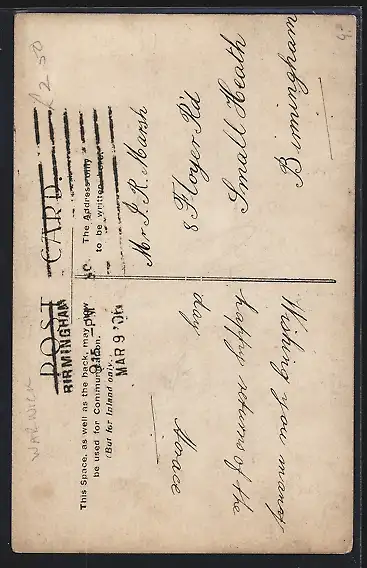 WARWICK
£2.50
POST CARD.
BIRMINGHAM
MAR 9 '06
This Space, as well as the back, may now
be used for Communication.
(But for Inland only.)
The Address only
to be written here.
Wishing you many
happy returns of the
day
Horace
Mr J. R. Marsh
8 Floyer Rd
Small Heath
B